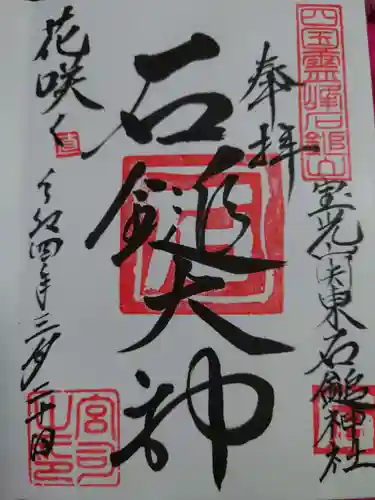 四国霊峰石鎚山
奉拝
宝光
関東石鎚神社
石鎚大神
花咲く
令和四年三月二十日
宮司之印